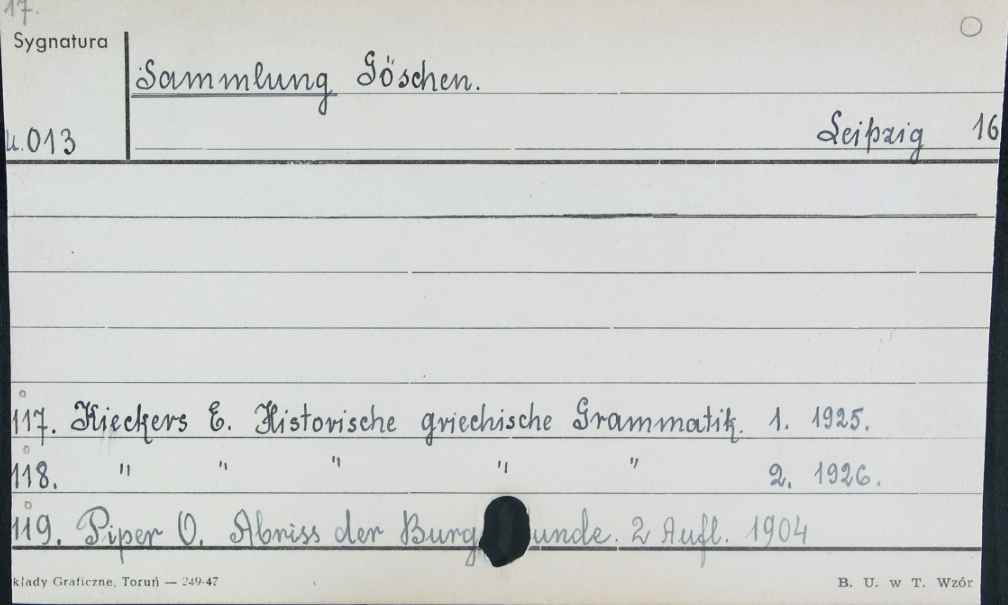 17.
Sygnatura
Sammlung Göschen.
u.013
Leipzig 16
117. Kieckers E. Historische griechische Grammatik. 1. 1925.
118. " " " " " 2. 1926.
119. Piper O. Abriss der Burg unde. 2 Aufl. 1904
kłady Graficzne, Toruń — 249-47
B. U. w T. Wzór